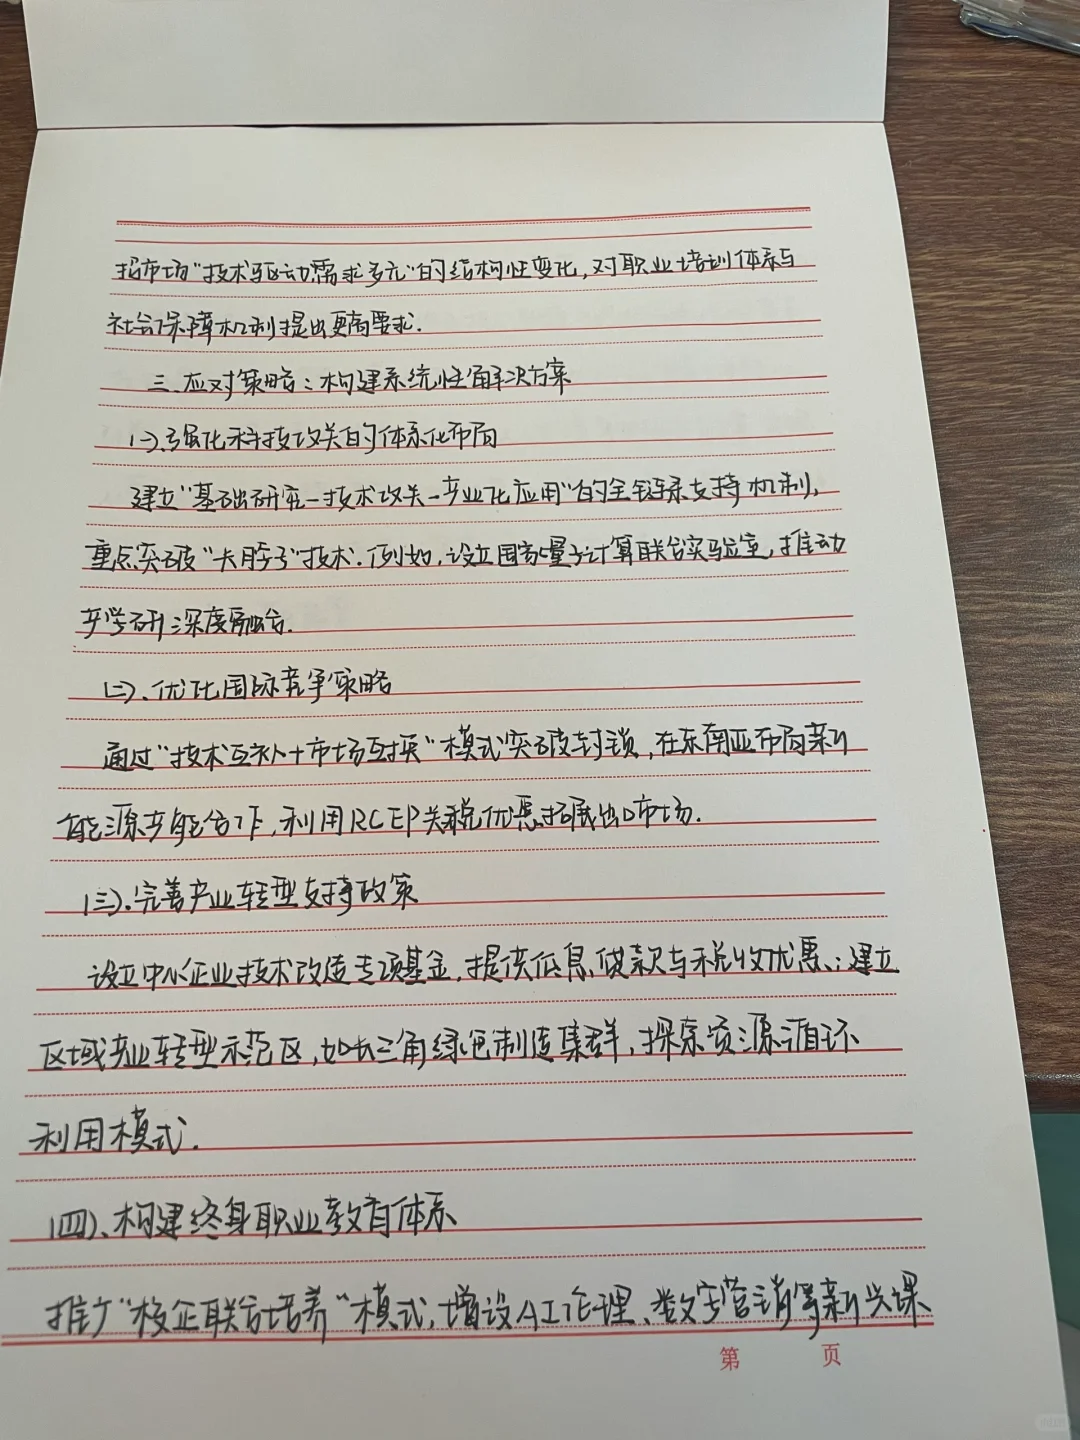 招市场“技术驱动,需求多元”的结构性变化,对职业培训体系与
社会保障机制提出更高要求.
三.应对策略:构建系统性解决方案
(一).强化科技攻关的体系化布局
建立“基础研究-技术攻关-产业化应用”的全链条支持机制,
重点突破“卡脖子”技术.例如,设立国家量子计算联合实验室,推动
产学研深度融合.
(二).优化国际竞争策略
通过“技术互补+市场互换”模式突破封锁,在东南亚布局新
能源产能合作,利用RCEP关税优惠拓展出口市场.
(三).完善产业转型支持政策
设立中小企业技术改造专项基金,提供低息贷款与税收优惠;建立
区域产业转型示范区,如长三角绿色制造集群,探索资源循环
利用模式.
(四).构建终身职业教育体系
推广“校企联合培养”模式,增设AI伦理、数字营销等新兴课
第 页